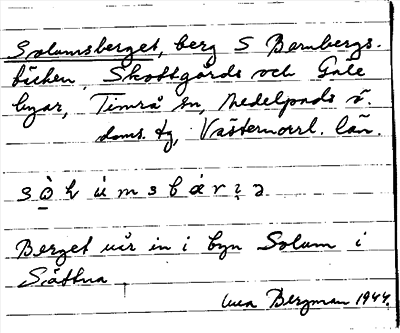 Solumsberget, berg S Bambergs-
bäcken, Skottgårds och Gåle
byar, Timrå sn, Medelpads ö.
doms. tg, Västernorrl. län.
Berget når in i byn Solum i
Sättna.
Bergman 1944.